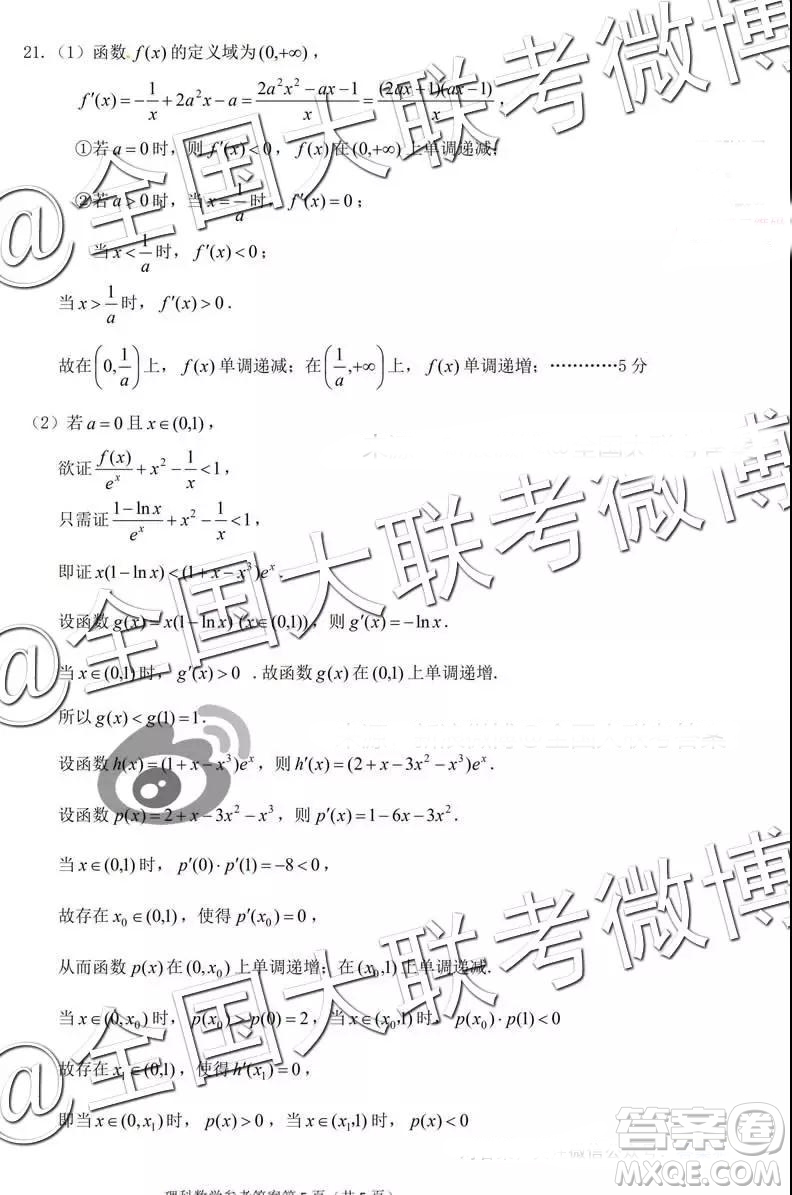 21.（1）函数 f(x) 的定义域为(0,+∞)，
f′(x)=−1/x+2a²x−a=(2a²x²−ax−1)/x=(2ax+1)(ax−1)/x，
①若 a=0 时，则 f′(x)<0，f(x)在(0,+∞) 上单调递减；
②若 a>0 时，当 x=1/a 时，f′(x)=0；
当 x<1/a 时，f′(x)<0；
当 x>1/a 时，f′(x)>0．
故在(0,1/a)上，f(x)单调递减；在(1/a,+∞)上，f(x)单调递增；…………5 分
（2）若 a=0 且 x∈(0,1)，
欲证 f(x)/eˣ+x²−1/x<1，
只需证 (1−ln x)/eˣ+x²−1/x<1，
即证 x(1−ln x)<(1+x−x³)eˣ
设函数 g(x)=x(1−ln x) (x∈(0,1))，则 g′(x)=−ln x．
当 x∈(0,1)时，g′(x)>0 ．故函数 g(x)在(0,1)上单调递增.
所以 g(x)<g(1)=1．
设函数 h(x)=(1+x−x³)eˣ，则 h′(x)=(2+x−3x²−x³)eˣ．
设函数 p(x)=2+x−3x²−x³，则 p′(x)=1−6x−3x²．
当 x∈(0,1)时，p′(0)·p′(1)=−8<0，
故存在 x₀∈(0,1)，使得 p′(x₀)=0，
从而函数 p(x)在(0,x₀)上单调递增；在(x₀,1)上单调递减.
当 x∈(0,x₀)时，p(x₀)>p(0)=2，当 x∈(x₀,1)时，p(x₀)·p(1)<0
故存在 x₁∈(0,1)，使得 h′(x₁)=0，
即当 x∈(0,x₁)时，p(x)>0，当 x∈(x₁,1)时，p(x)<0
理科数学参考答案第 5 页（共 5 页）
@全国大联考微博
@全国大联考微博
@全国大联考微博
答案圈